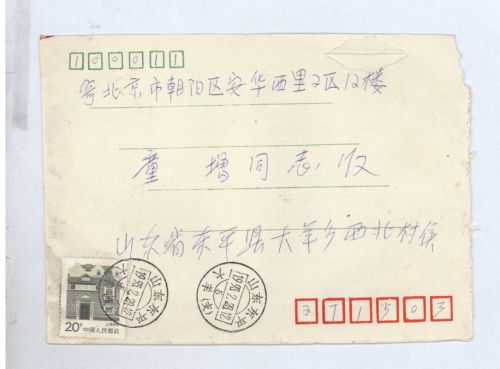 100011
寄北京市朝阳区安华西里2区12楼
童增同志 收
山东省东平县大羊乡西北村侯
271503
山东东平
1993.2.28.12
大羊
山东东平
1993.2.28.12
大羊
20分 中国人民邮政